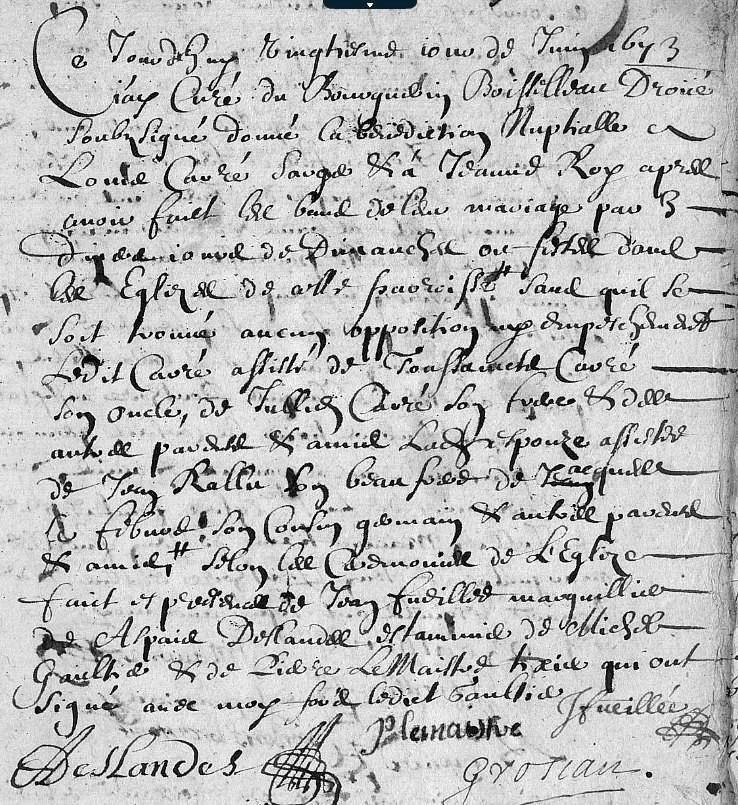 Ce Jourdhuy Vingtiesme iour de Juin 1673
iay Curé du Bourquevin Boissilleau Droué
soubsigné donné la benediction Nuptialle a
Louis Carré Sarge & à Jeanne Roy apres
auoir faict les bans de leur mariage par 3
diuers iours de Dimanches ou festes dans
les Eglizes de cette parroisse sans quil se
soit trouué aucun opposition ny empeschement
Ledit Carré assisté de Toussaincts Carré
son oncle, de Jullien Carré son frere & des
autres parens & amis Ladte espouze assistee
de Jean Rallu son beau frere de Jacques
le febure son Cousin germain & autres parens
& amis selon les Ceremonies de L'Eglize
faict es presences de Jean fueillee marguillier
de Alpaid DesLandes estaminier de Michel
Gaultier & de Pierre LeMaistre tixier qui ont
signé auec moy fors ledict Gaultier Jfueillée
Plemaistre
DesLandes Grosian.